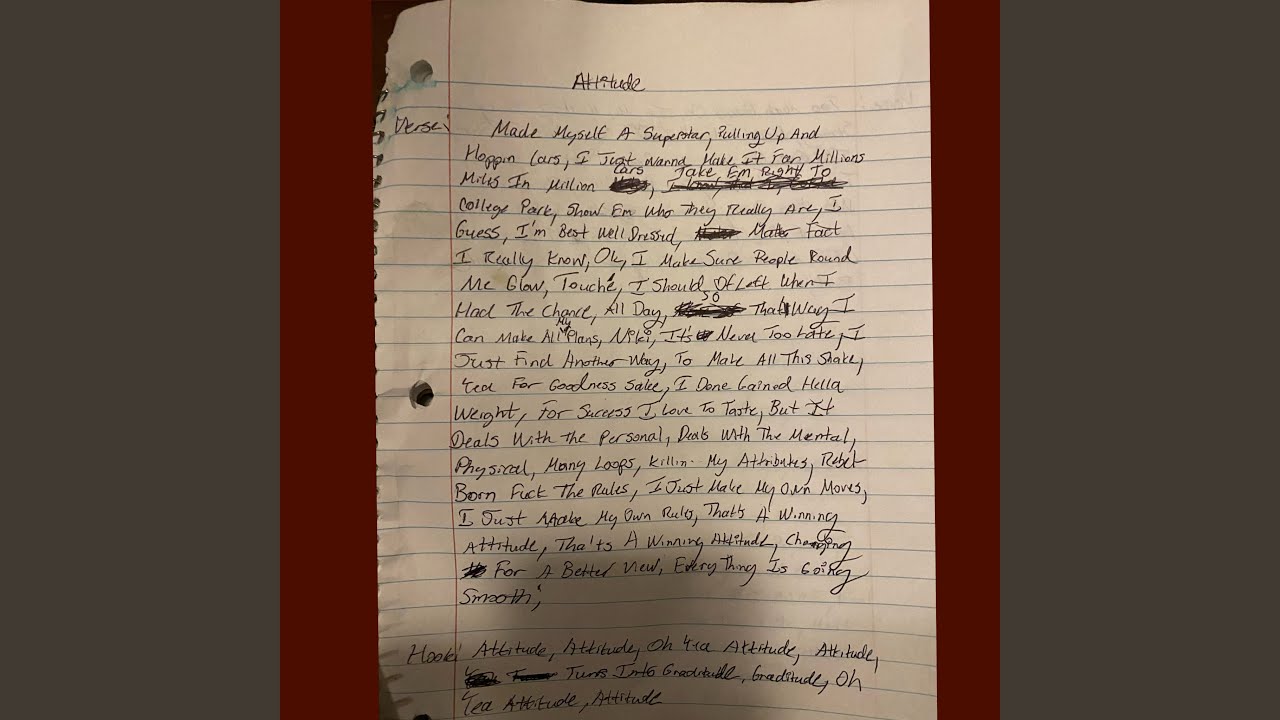 Attitude
Verse: Made Myself A Superstar, Pulling Up And
Hoppin Cars, I Just Wanna Make It Far, Millions
Miles In Million Cars, Take Em Right To
College Park, Show Em Who They Really Are, I
Guess, I'm Best Well Dressed, Mater Fact
I Really Know, Ok, I Make Sure People Round
Me Glow, Touché, I Should Of Left When I
Had The Chance, All Day, So That Way I
Can Make All My Plans, Niki, It's Never Too Late, I
Just Find Another Way, To Make All This Shake,
Yea For Goodness Sake, I Done Gained Hella
Weight, For Success I Love To Taste, But It
Deals With The Personal, Deals With The Mental,
Physical, Many Loops, Killin My Attributes, Rebel
Born Fuck The Rules, I Just Make My Own Moves,
I Just Make My Own Rules, That's A Winning
Attitude, Tha'ts A Winning Attitude, Changing
For A Better View, Every Thing Is Going
Smooth,
Hook: Attitude, Attitude, Oh Yea Attitude, Attitude,
Turns Into Graditude, Graditude, Oh
Yea Attitude, Attitude